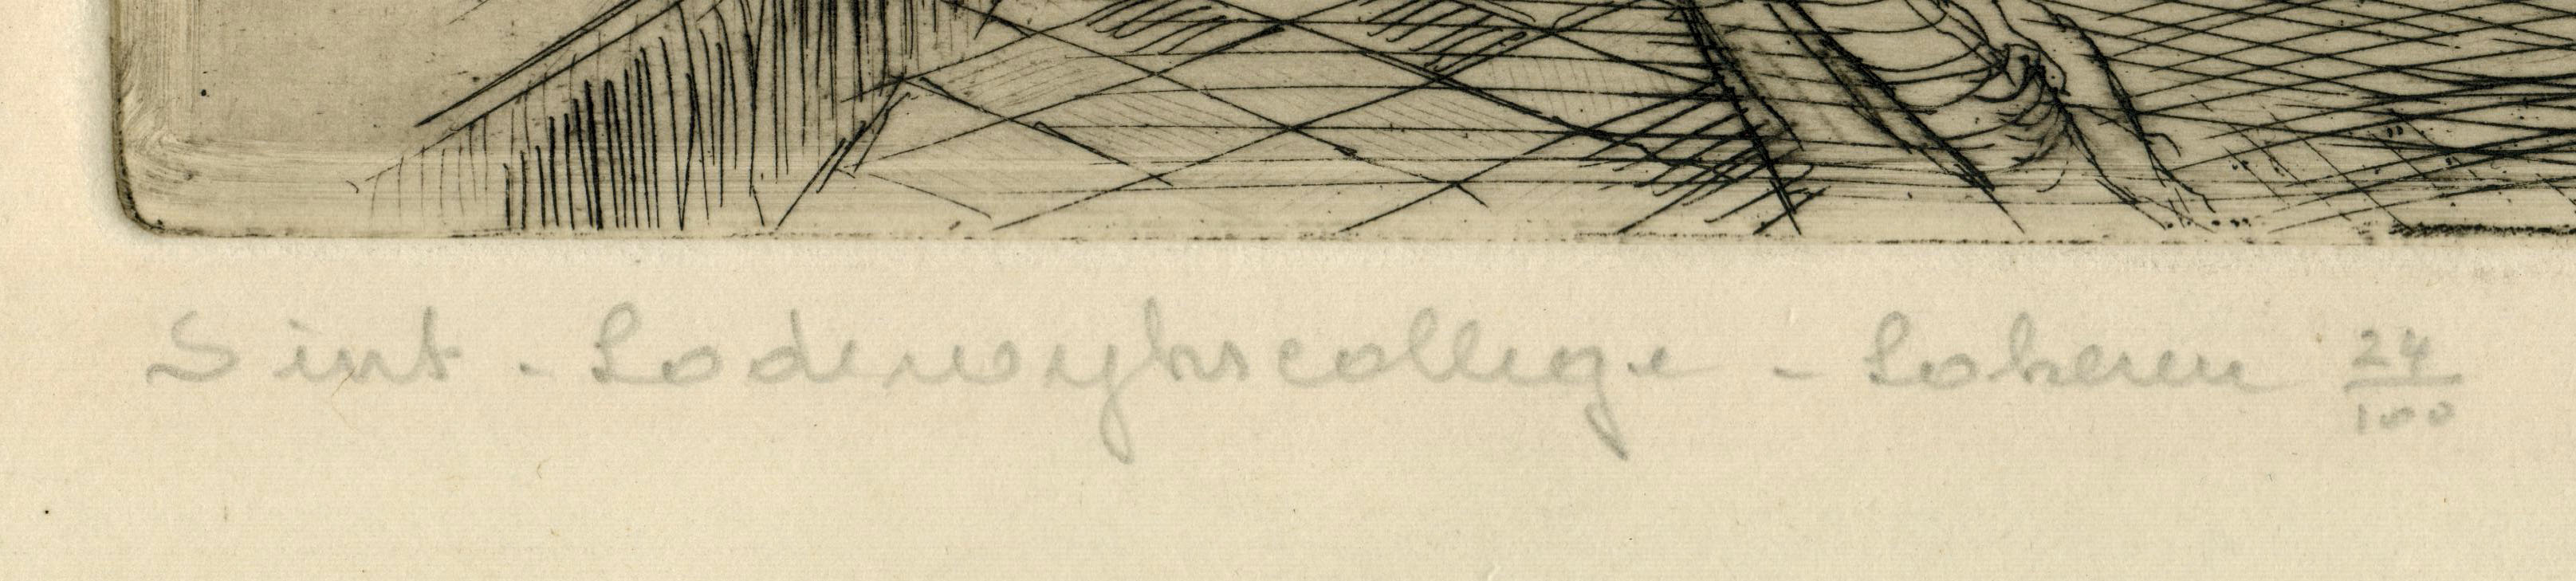 Sint - Lodewykscollege - Lokeren 24/100